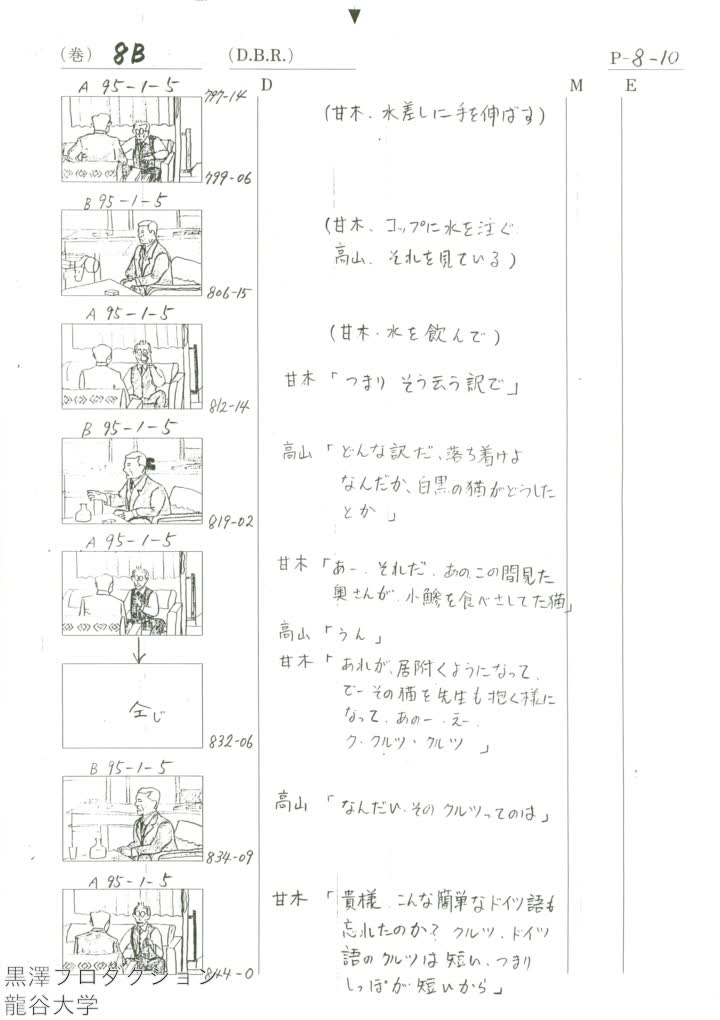 (巻) 8B (D.B.R.) P-8-10
D M E
A 95-1-5
797-14
(甘木、水差しに手を伸ばす)
799-06
B 95-1-5
(甘木、コップに水を注ぐ
高山、それを見ている)
806-15
A 95-1-5
(甘木・水を飲んで)
甘木「つまり そう云う訳で」
812-14
B 95-1-5
高山「どんな訳だ、落ち着けよ
なんだか、白黒の猫がどうした
とか」
819-02
A 95-1-5
甘木「あー、それだ、あの、この間見た
奥さんが、小鯵を食べさしてた猫」
高山「うん」
甘木「あれが、居附くようになって、
でーその猫を先生も抱く様に
なって、あのー、えー、
ク・クルツ・クルツ」
仝じ
832-06
B 95-1-5
高山「なんだい、その クルツってのは」
834-09
A 95-1-5
甘木「貴様、こんな簡単なドイツ語も
忘れたのか? クルツ、ドイツ
語のクルツは短い、つまり
しっぽが短いから」
844-0
黒澤プロダクション
龍谷大学